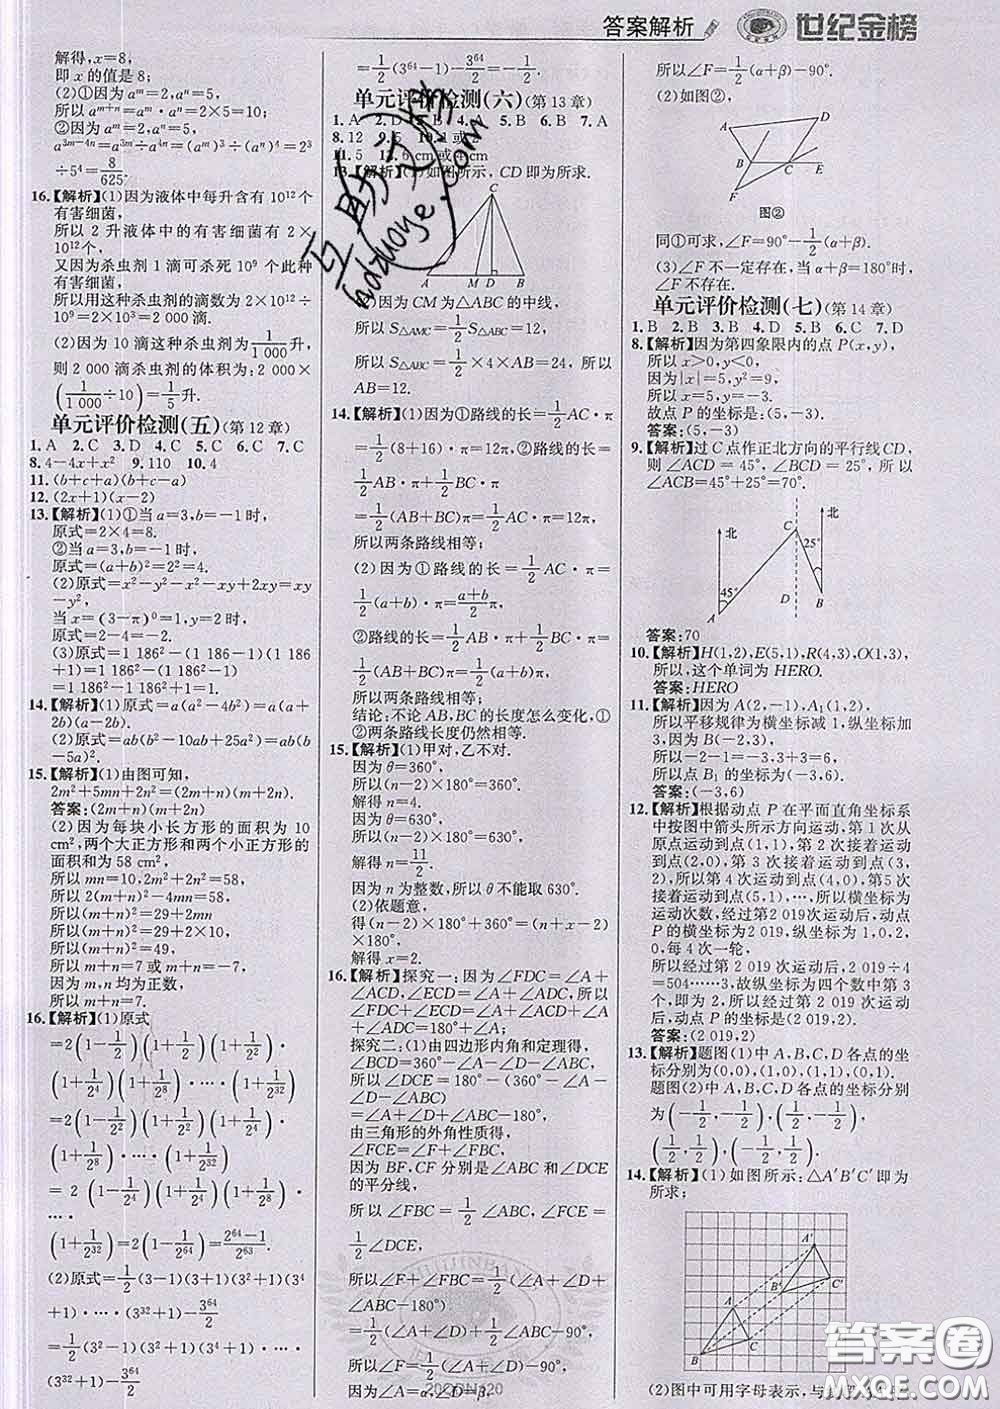 答案解析 世纪金榜
解得,x=8,
即 x 的值是 8;
(2)①因为 aᵐ=2,aⁿ=5,
所以 aᵐ⁺ⁿ=aᵐ·aⁿ=2×5=10;
②因为 aᵐ=2,aⁿ=5,
a³ᵐ⁻⁴ⁿ=a³ᵐ÷a⁴ⁿ=(aᵐ)³÷(aⁿ)⁴=2³
÷5⁴=8/625.
16.【解析】(1)因为液体中每升含有 10¹² 个
有害细菌,
所以 2 升液体中的有害细菌有 2×
10¹² 个,
又因为杀虫剂 1 滴可杀死 10⁹ 个此种
有害细菌,
所以用这种杀虫剂的滴数为 2×10¹²
÷10⁹=2×10³=2 000 滴.
(2)因为 10 滴这种杀虫剂为 1/1 000 升,
则 2 000 滴杀虫剂的体积为:2 000
×(1/1 000÷10)=1/5 升.
单元评价检测(五)(第 12 章)
1.A 2.C 3.D 4.C 5.C 6.C 7.C
8.4-4x+x² 9.110 10.4
11.(b+c+a)(b+c-a)
12.(2x+1)(x-2)
13.【解析】(1)①当 a=3,b=-1 时,
原式=2×4=8.
②当 a=3,b=-1 时,
原式=(a+b)²=2²=4.
(2)原式=x²-y²-x²-xy+2xy=xy
-y²,
当 x=(3-π)⁰=1,y=2 时,
原式=2-4=-2.
(3)原式=1 186²-(1 186-1)(1 186
+1)=1 186²-(1 186²-1)
=1 186²-1 186²+1=1.
14.【解析】(1)原式=a(a²-4b²)=a(a+
2b)(a-2b).
(2)原式=ab(b²-10ab+25a²)=ab(b
-5a)².
15.【解析】(1)由图可知,
2m²+5mn+2n²=(2m+n)(m+2n).
答案:(2m+n)(m+2n)
(2)因为每块小长方形的面积为 10
cm²,两个大正方形和两个小正方形的
面积和为 58 cm²,
所以 mn=10,2m²+2n²=58,
所以 2(m+n)²-4mn=58,
所以(m+n)²=29+2mn
所以(m+n)²=29+2×10,
所以(m+n)²=49,
所以 m+n=7 或 m+n=-7,
因为 m,n 均为正数,
所以 m+n=7.
16.【解析】(1)原式
=2(1-1/2)(1+1/2)(1+1/2²)·
(1+1/2⁴)(1+1/2⁸)·…·(1+1/2³²)
=2(1-1/2²)(1+1/2²)(1+1/2⁴)·
(1+1/2⁸)·…·(1+1/2³²)
=2(1-1/2⁴)(1+1/2⁴)(1+1/2⁸)·
…·
(1+1/2³²)=2(1-1/2⁶⁴)=(2⁶⁴-1)/2⁶³.
(2)原式=1/2(3-1)(3+1)(3²+1)(3⁴
+1)·…·(3³²+1)-3⁶⁴/2
=1/2(3²-1)(3²+1)(3⁴+1)·…·
(3³²+1)-3⁶⁴/2
=1/2(3⁶⁴-1)-3⁶⁴/2=-1/2.
单元评价检测(六)(第 13 章)
1.A 2.D 3.B 4.A 5.B 6.B 7.A
8.12 9.5 10.1 或 2
11.5 12.6 cm 或 4 cm
13.【解析】(1)如图所示,CD 即为所求.
C
A M D B
(2)因为 CM 为△ABC 的中线,
所以 S△AMC=1/2S△ABC=12,
所以 S△ABC=1/2×4×AB=24,所以
AB=12.
14.【解析】(1)因为①路线的长=1/2AC·π
=1/2(8+16)·π=12π,②路线的长=
1/2AB·π+1/2BC·π
=1/2(AB+BC)π=1/2AC·π=12π,
所以两条路线相等;
(2)因为①路线的长=1/2AC·π=
1/2(a+b)π=(a+b)/2π,
②路线的长=1/2AB·π+1/2BC·π=
1/2(AB+BC)π=1/2(a+b)π,
所以两条路线相等;
结论:不论 AB,BC 的长度怎么变化,①
②两条路线长度仍然相等.
15.【解析】(1)甲对,乙不对.
因为 θ=360°,
所以(n-2)×180°=360°,
解得 n=4.
因为 θ=630°,
所以(n-2)×180°=630°,
解得 n=11/2.
因为 n 为整数,所以 θ 不能取 630°.
(2)依题意,
得(n-2)×180°+360°=(n+x-2)
×180°,
解得 x=2.
16.【解析】探究一:因为∠FDC=∠A+
∠ACD,∠ECD=∠A+∠ADC,所以
∠FDC+∠ECD=∠A+∠ACD+
∠A+∠ADC=180°+∠A;
探究二:(1)由四边形内角和定理得,
∠BCD=360°-∠A-∠D-∠ABC,
所以∠DCE=180°-(360°-∠A-
∠D-∠ABC)=∠A+∠D+∠ABC-180°,
由三角形的外角性质得,
∠FCE=∠F+∠FBC,
因为 BF,CF 分别是∠ABC 和∠DCE
的平分线,
所以∠FBC=1/2∠ABC,∠FCE=1/2
∠DCE,
所以∠F+∠FBC=1/2(∠A+∠D+
∠ABC-180°)
=1/2(∠A+∠D)+1/2∠ABC-90°,
所以∠F=1/2(∠A+∠D)-90°,
因为∠A=α,∠D=β,
所以∠F=1/2(α+β)-90°.
(2)如图②,
A D B C E F
图②
同①可求,∠F=90°-1/2(α+β).
(3)∠F 不一定存在,当 α+β=180°时,
∠F 不存在.
单元评价检测(七)(第 14 章)
1.B 2.B 3.B 4.D 5.B 6.C 7.D
8.【解析】因为第四象限内的点 P(x,y),
所以 x>0,y<0,
因为|x|=5,y²=9,
所以 x=5,y=-3.
故点 P 的坐标是:(5,-3).
答案:(5,-3)
9.【解析】过 C 点作正北方向的平行线CD,
则∠ACD=45°,∠BCD=25°,所以
∠ACB=45°+25°=70°.
北 北
C 25° 45° B A
答案:70
10.【解析】H(1,2),E(5,1),R(4,3),O(1,3),
所以,这个单词为 HERO.
答案:HERO
11.【解析】因为 A(2,-1),A₁(1,2),
所以平移规律为横坐标减 1,纵坐标加
3,因为 B(-2,3),
所以-2-1=-3,3+3=6,
所以点 B₁ 的坐标为(-3,6).
答案:(-3,6)
12.【解析】根据动点 P 在平面直角坐标系
中按图中箭头所示方向运动,第 1 次从
原点运动到点(1,1),第 2 次接着运动
到点(2,0),第 3 次接着运动到点(3,
2),第 4 次运动到点(4,0),第 5 次
接着运动到点(5,1),…,所以横坐标为
运动次数,经过第 2 019 次运动后,动点
P 的横坐标为 2 019,纵坐标为 1,0,2,
0,每 4 次一轮,
所以经过第 2 019 次运动后,2 019÷4
=504……3,故纵坐标为四个数中第 3
个,即为 2,所以经过第 2 019 次运动
后,动点 P 的坐标是(2 019,2).
答案:(2 019,2)
13.【解析】题图(1)中 A,B,C,D 各点的坐
标分别为(0,0),(1,0),(1,1),(0,1).
题图(2)中 A,B,C,D 各点的坐标分别
为(-1/2,-1/2),(1/2,-1/2),
(1/2,1/2),(-1/2,1/2).
14.【解析】(1)如图所示:△A′B′C′即为
所求;
A′ C′ B′ A C B
(2)图中可用字母表示,与
互助 hdzuoye.com
答案圈
MXQE.COM